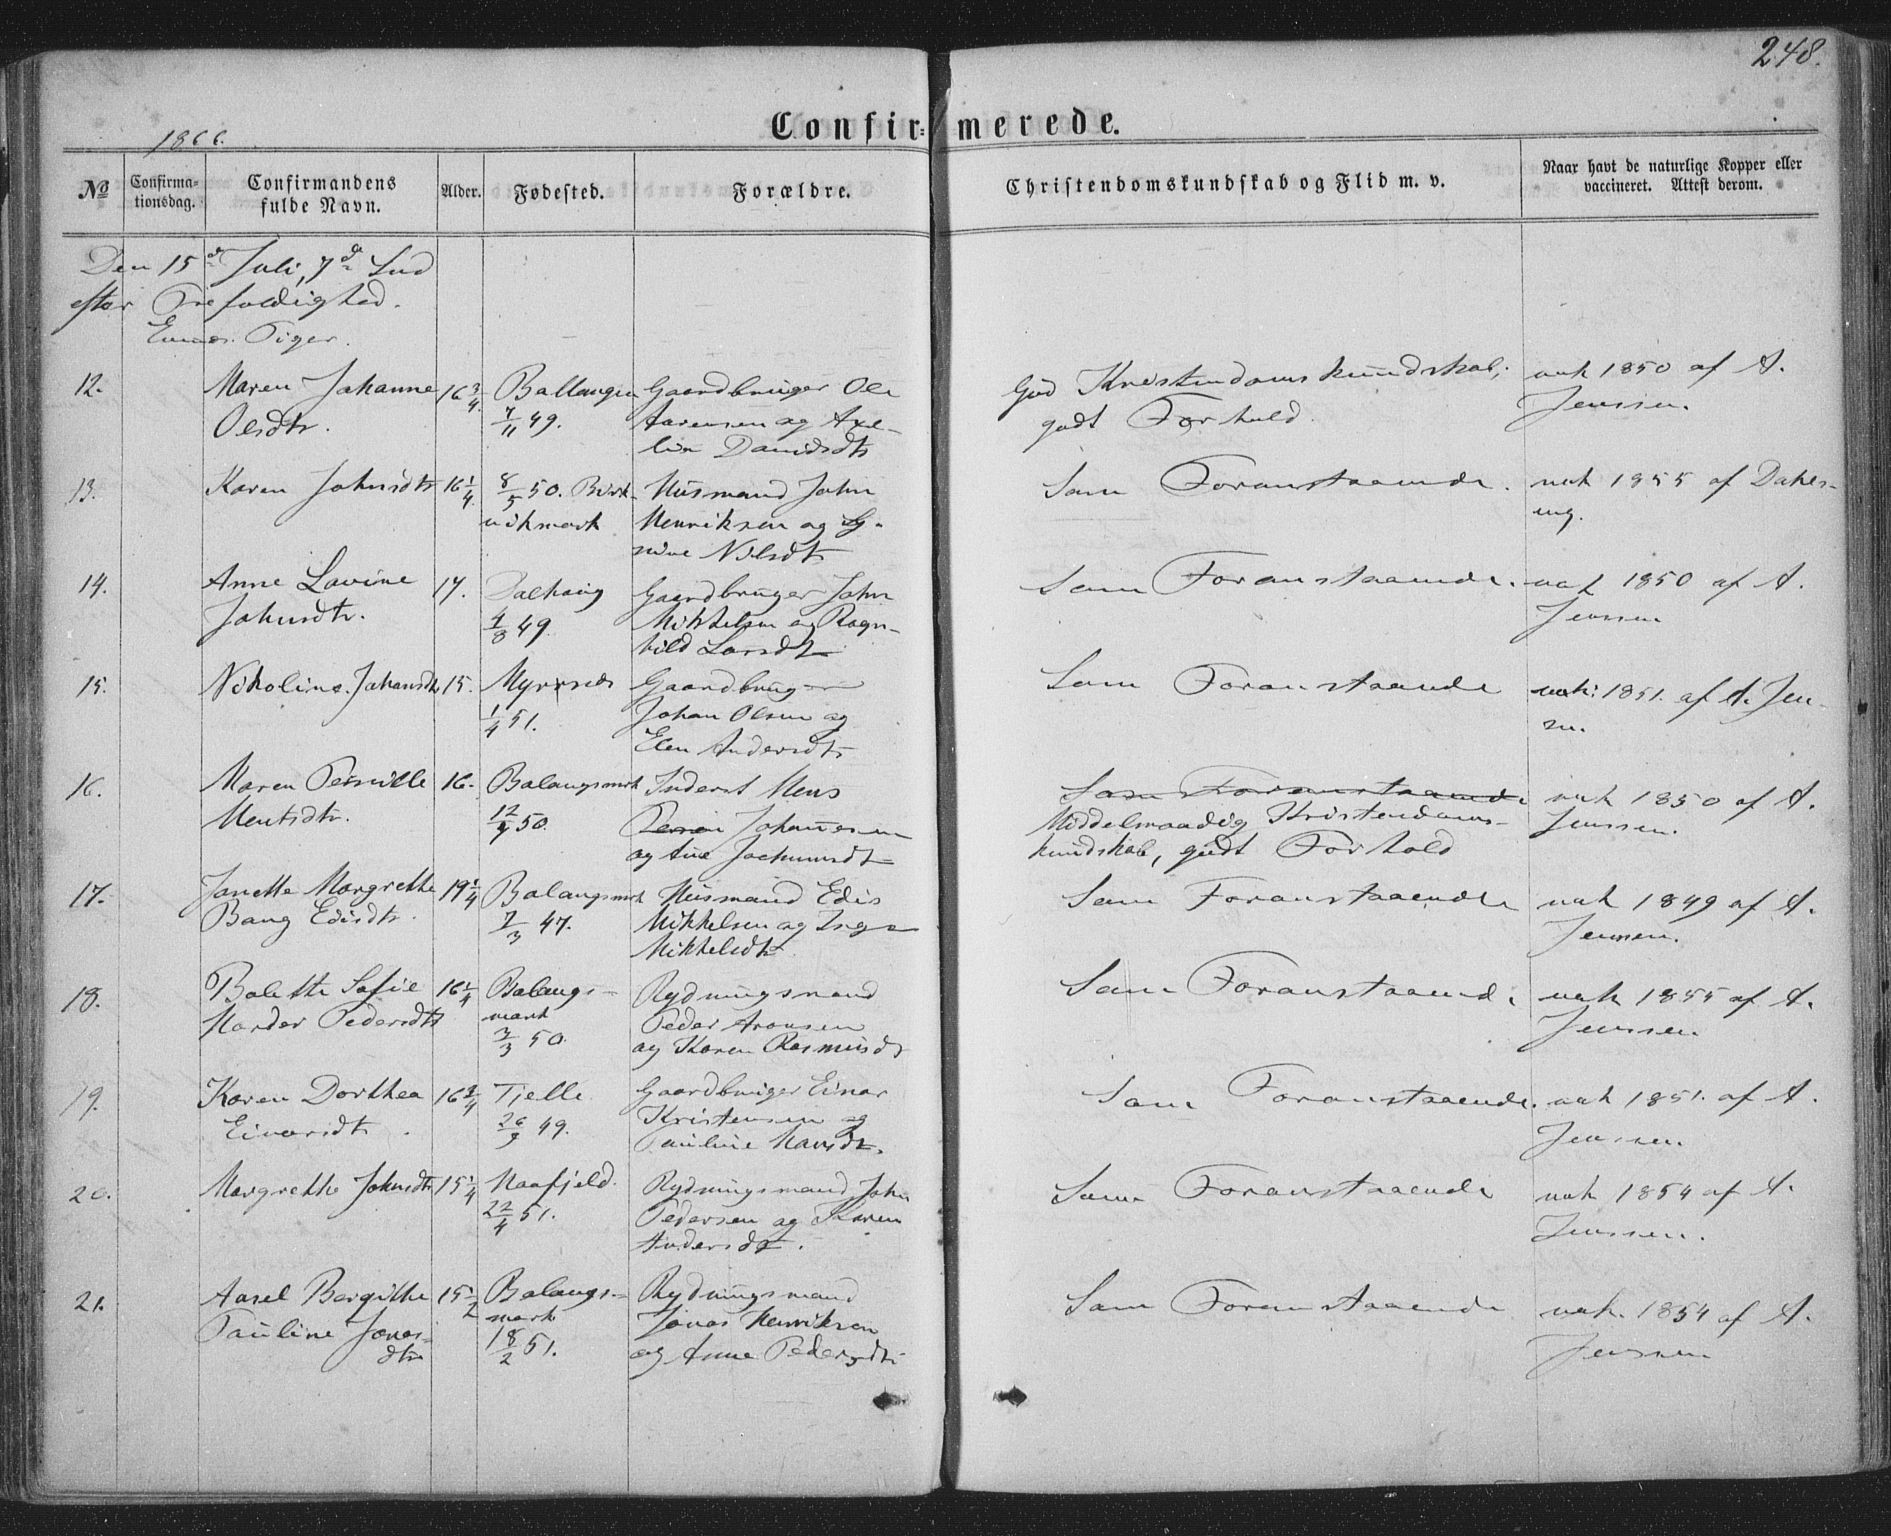 248.
1866.
Confirmerede.
No
Confirmationsdag.
Confirmandens fulde Navn.
Alder.
Fødested.
Forældre.
Christendomskundskab og Flid m. v.
Naar havt de naturlige Kopper eller vaccineret. Attest derom.
Den 15de Juli, 7de Snd
efter Trefoldighed.
Piger.
12. Maren Johanne 16 3/4. Ballangen Gaardbruger Ole God Kristendomskundskab, vak 1850 af A.
Olsdtr. 7/11 49. Aarensen og Axe- godt Forhold. Jenssen.
lia Danidsdtr
13. Karen Johnsdtr 16 1/4. 8/5 50. Birk- Husmand John Som Foranstaaende. vak 1855 af Dahls-
vikmark Henriksen og Sg- eng.
nine Nilsdtr
14. Anne Lavine 17. Dalhaug Gaardbruger John Som Foranstaaende. vak 1850 af A.
Johnsdtr. 4/8 49. Mikkelsen og Ragn- Jenssen
hild Larsdtr
15. Nikoline Johansdtr 15. Myrnes Gaardbruger Som Foranstaaende vak: 1851. af A. Jen-
1/4 51. Johan Olsen og sn.
Elen Andersdtr
16. Maren Pernille 16. Balangsmrk Inderst Mens Som Foranstaaende vak 1850 af A.
Mentsdtr. 12/4 50. Johannesen Middelmaadig Kristendoms- Jenssen.
og Ane Jochumsdtr kundskab, godt Forhold
17. Janette Margrethe 19 1/4 Balangsmrk Husmand Edis Som Foranstaaende vak 1849 af A.
Bang Edisdtr. 7/3 47. Mikkelsen og Inga Jenssen.
Mikkelsdtr
18. Bolette Sofie 16 1/4 Balangs- Rydningsmand Som Foranstaaende vak 1855 af A.
Norder Pedersdtr mark Peder Aronsen Jenssen
2/3 50. og Karen Rasmusdtr
19. Karen Dorthea 16 3/4 Tjelle Gaardbruger Einar Som Foranstaaende. vak 1851. af A.
Einarsdtr. 26/9 49. Kristensen og Jenssen.
Pauline Hansdtr.
20. Margrethe Johnsdtr 15 1/4 Haafjeld. Rydningsmand John Som Foranstaaende vak 1854 af A.
22/4 51. Pedersen og Karen Jenssen.
Andersdtr.
21. Aasel Bergithe 15 1/2 Balangs- Rydningsmand Som Foranstaaende vak. 1854 af A.
Pauline Jonas- mark Jonas Henriksen Jenssen
dtr 18/2 51. og Anne Pedersdtr